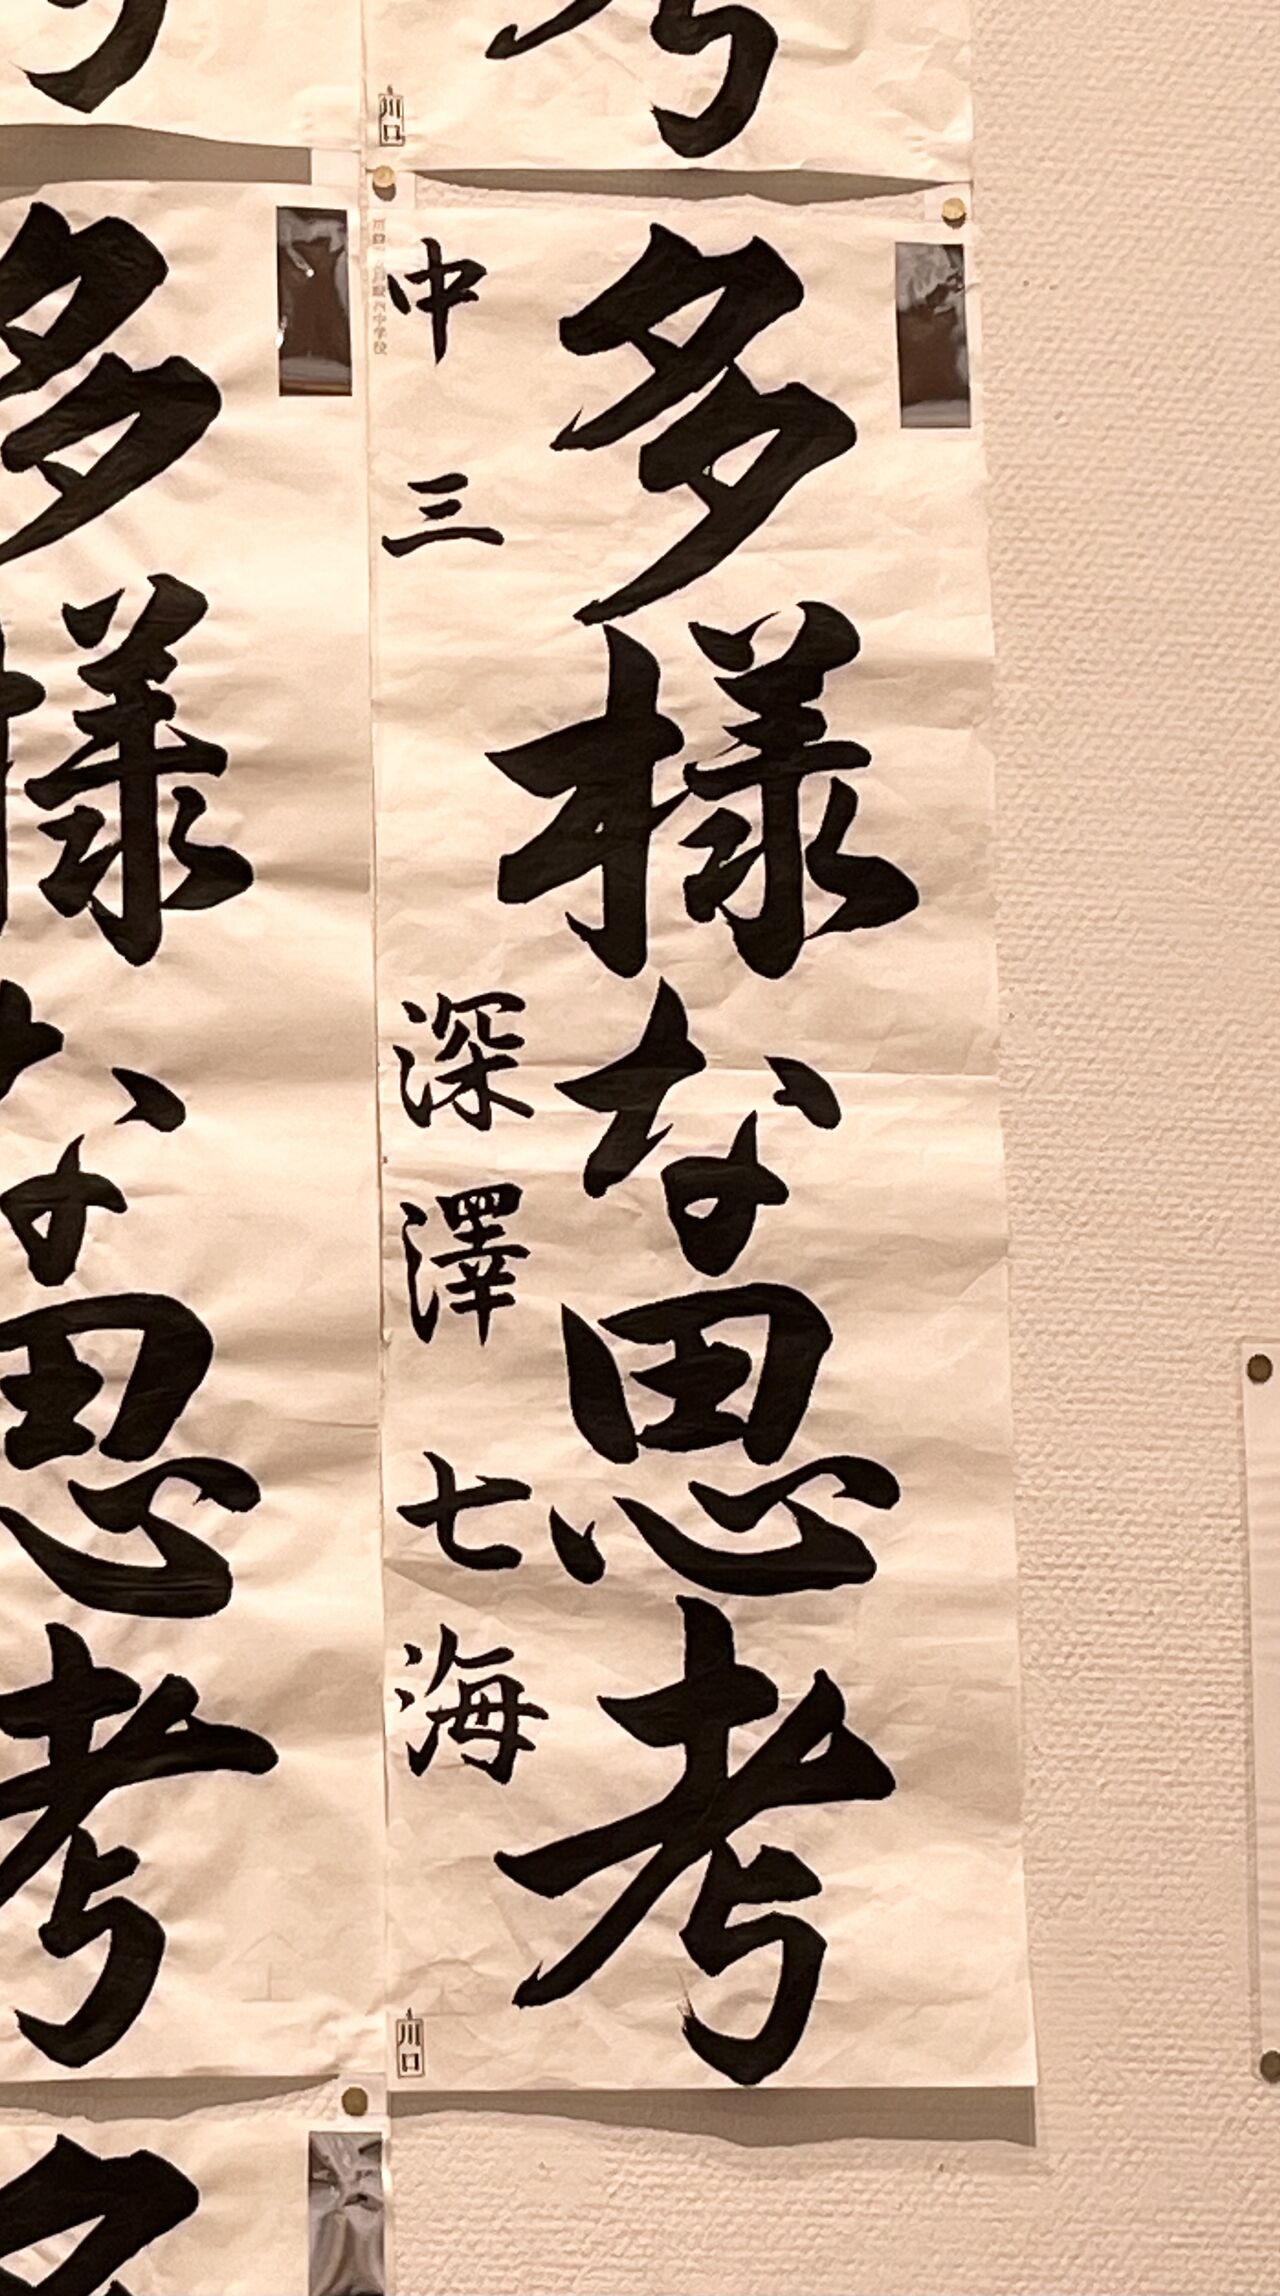 多様な思考
中三 深澤七海
川口
多様な思考
川口
多